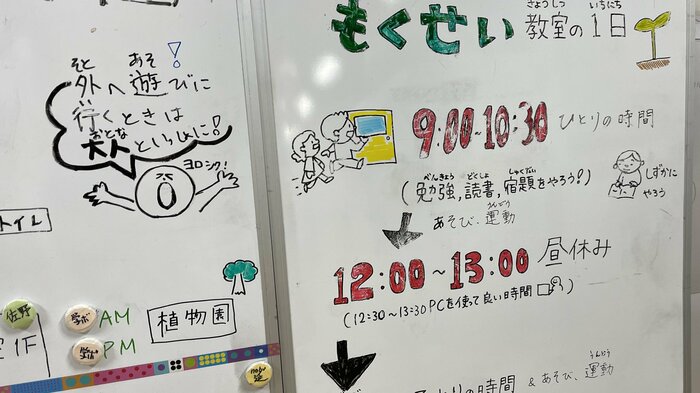 そと あそ
外へ遊びに!
い
行くときは
おとな
大人といっしょに!
ヨロシク!
トイレ
佐野
AM
PM
1F
植物園
きょうしつ いちにち
もくせい 教室の1日
9:00~10:30 ひとりの時間
べんきょう どくしょ しゅくだい
(勉強,読書,宿題をやろう!)
しずかに
やろう
うんどう
あそび、運動
12:00~13:00 昼休み
(12:30~13:30 PCを使って良い時間)
うんどう
とりの時間 & あそび、運動